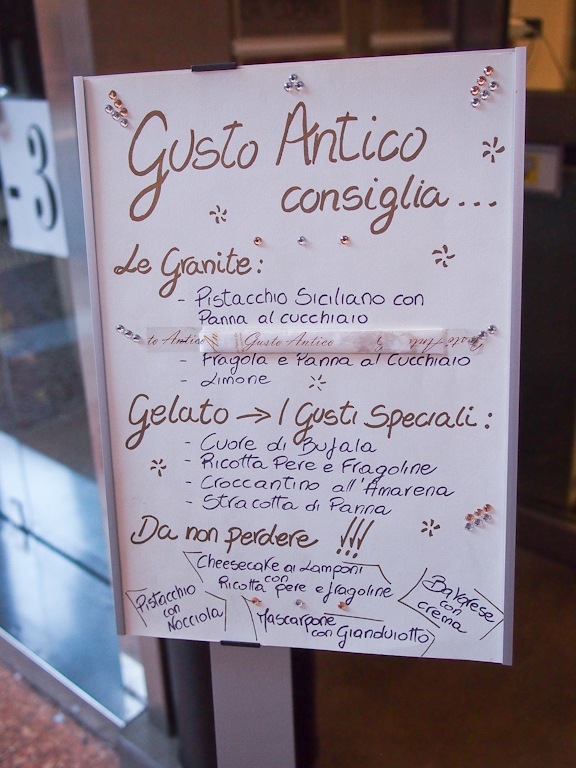 - 3
Gusto Antico
consiglia...
Le Granite:
- Pistacchio Siciliano con
Panna al cucchiaio
to Antico Gusto Antico
- Fragola e Panna al Cucchiaio
- Limone
Gelato → I Gusti Speciali:
- Cuore di Bufala
- Ricotta Pere e Fragoline
- Croccantino all'Amarena
- Stracotta di Panna
Da non perdere !!!
Cheesecake ai Lamponi
con
Ricotta pere e fragoline
Pistacchio
con
Nocciola
Mascarpone
con Gianduiotto
Bavarese
con
crema